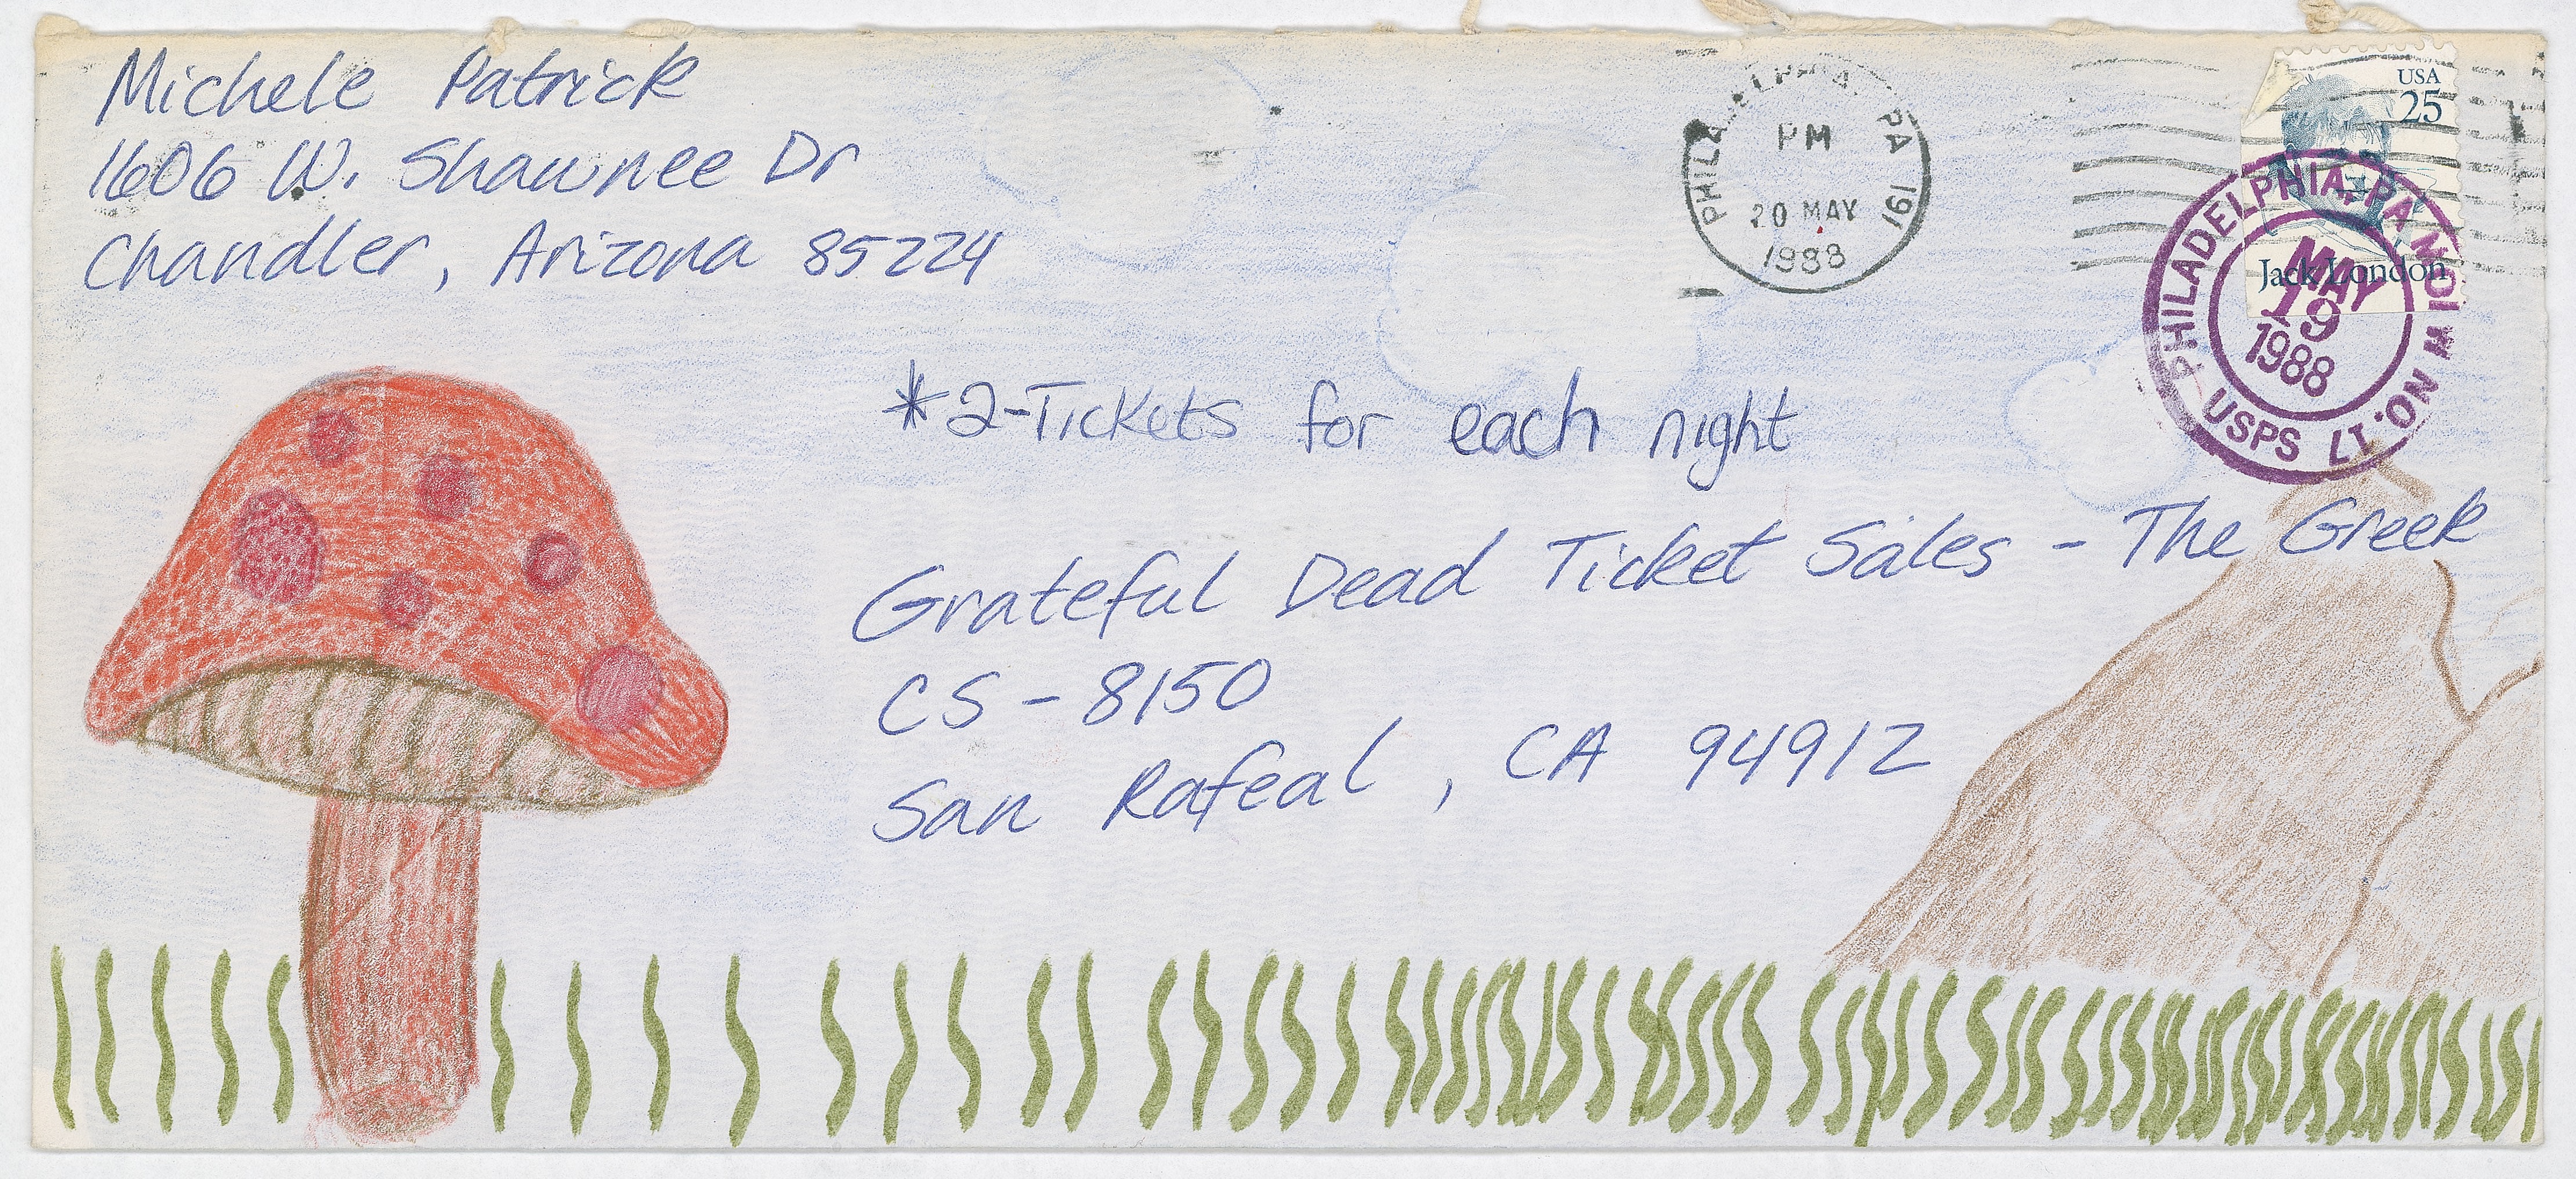 Michele Patrick
1606 W. Shawnee Dr
Chandler, Arizona 85224
PHILADELPHIA, PA 191
PM
20 MAY
1988
USA
25
Jack London
PHILADELPHIA, PA
MAY
19
1988
USPS
*2-Tickets for each night
Grateful Dead Ticket Sales - The Greek
CS - 8150
San Rafeal, CA 94912